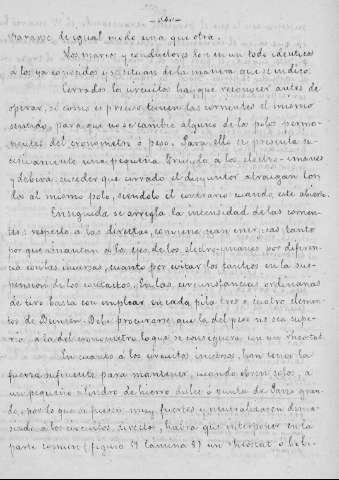 rararse de igual modo una que otra.
Los marcos y conductores son en un todo identicos
a los ya conocidos y se situan de la manera que se indicó.
Cerrados los circuitos hay que reconocer antes de
operar, si como es preciso tienen las corrientes el mismo
sentido, para que no se cambie alguno de los polos perma-
nentes del cronometro ó peso. Para ello se presenta su-
cesivamente una pequeña brujula á los electro-imanes
y deberá suceder que cerrado el disyuntor atraigan
al mismo polo, siendolo el contrario cuando este abierto.
Enseguida se arregla la intensidad de las corrien-
tes respecto a las directas, conviene sean energicas tanto
por que imantan á los ejes de los electro-imanes por diferen-
cia con las inversas, cuanto por evitar los fallos en la sus-
pension de los cilindros. En las circunstancias ordinarias
de tiro basta con emplear en cada pila tres ó cuatro elemen-
tos de Bunsen. Debe procurarse que la del peso no sea supe-
rior á la del cronometro lo que se conseguirá con un rheostat.
En cuanto a los circuitos inversos, han tener la
fuerza suficiente para mantener, cuando obren solos, á
un pequeño cilindro de hierro dulce ó punta de Paris gran-
de, por lo que si fuesen muy fuertes y neutralizasen dema-
siado á los circuitos directos, habrá que interponer en la
parte comun (figura 19 lamina 8) un rheostat ó